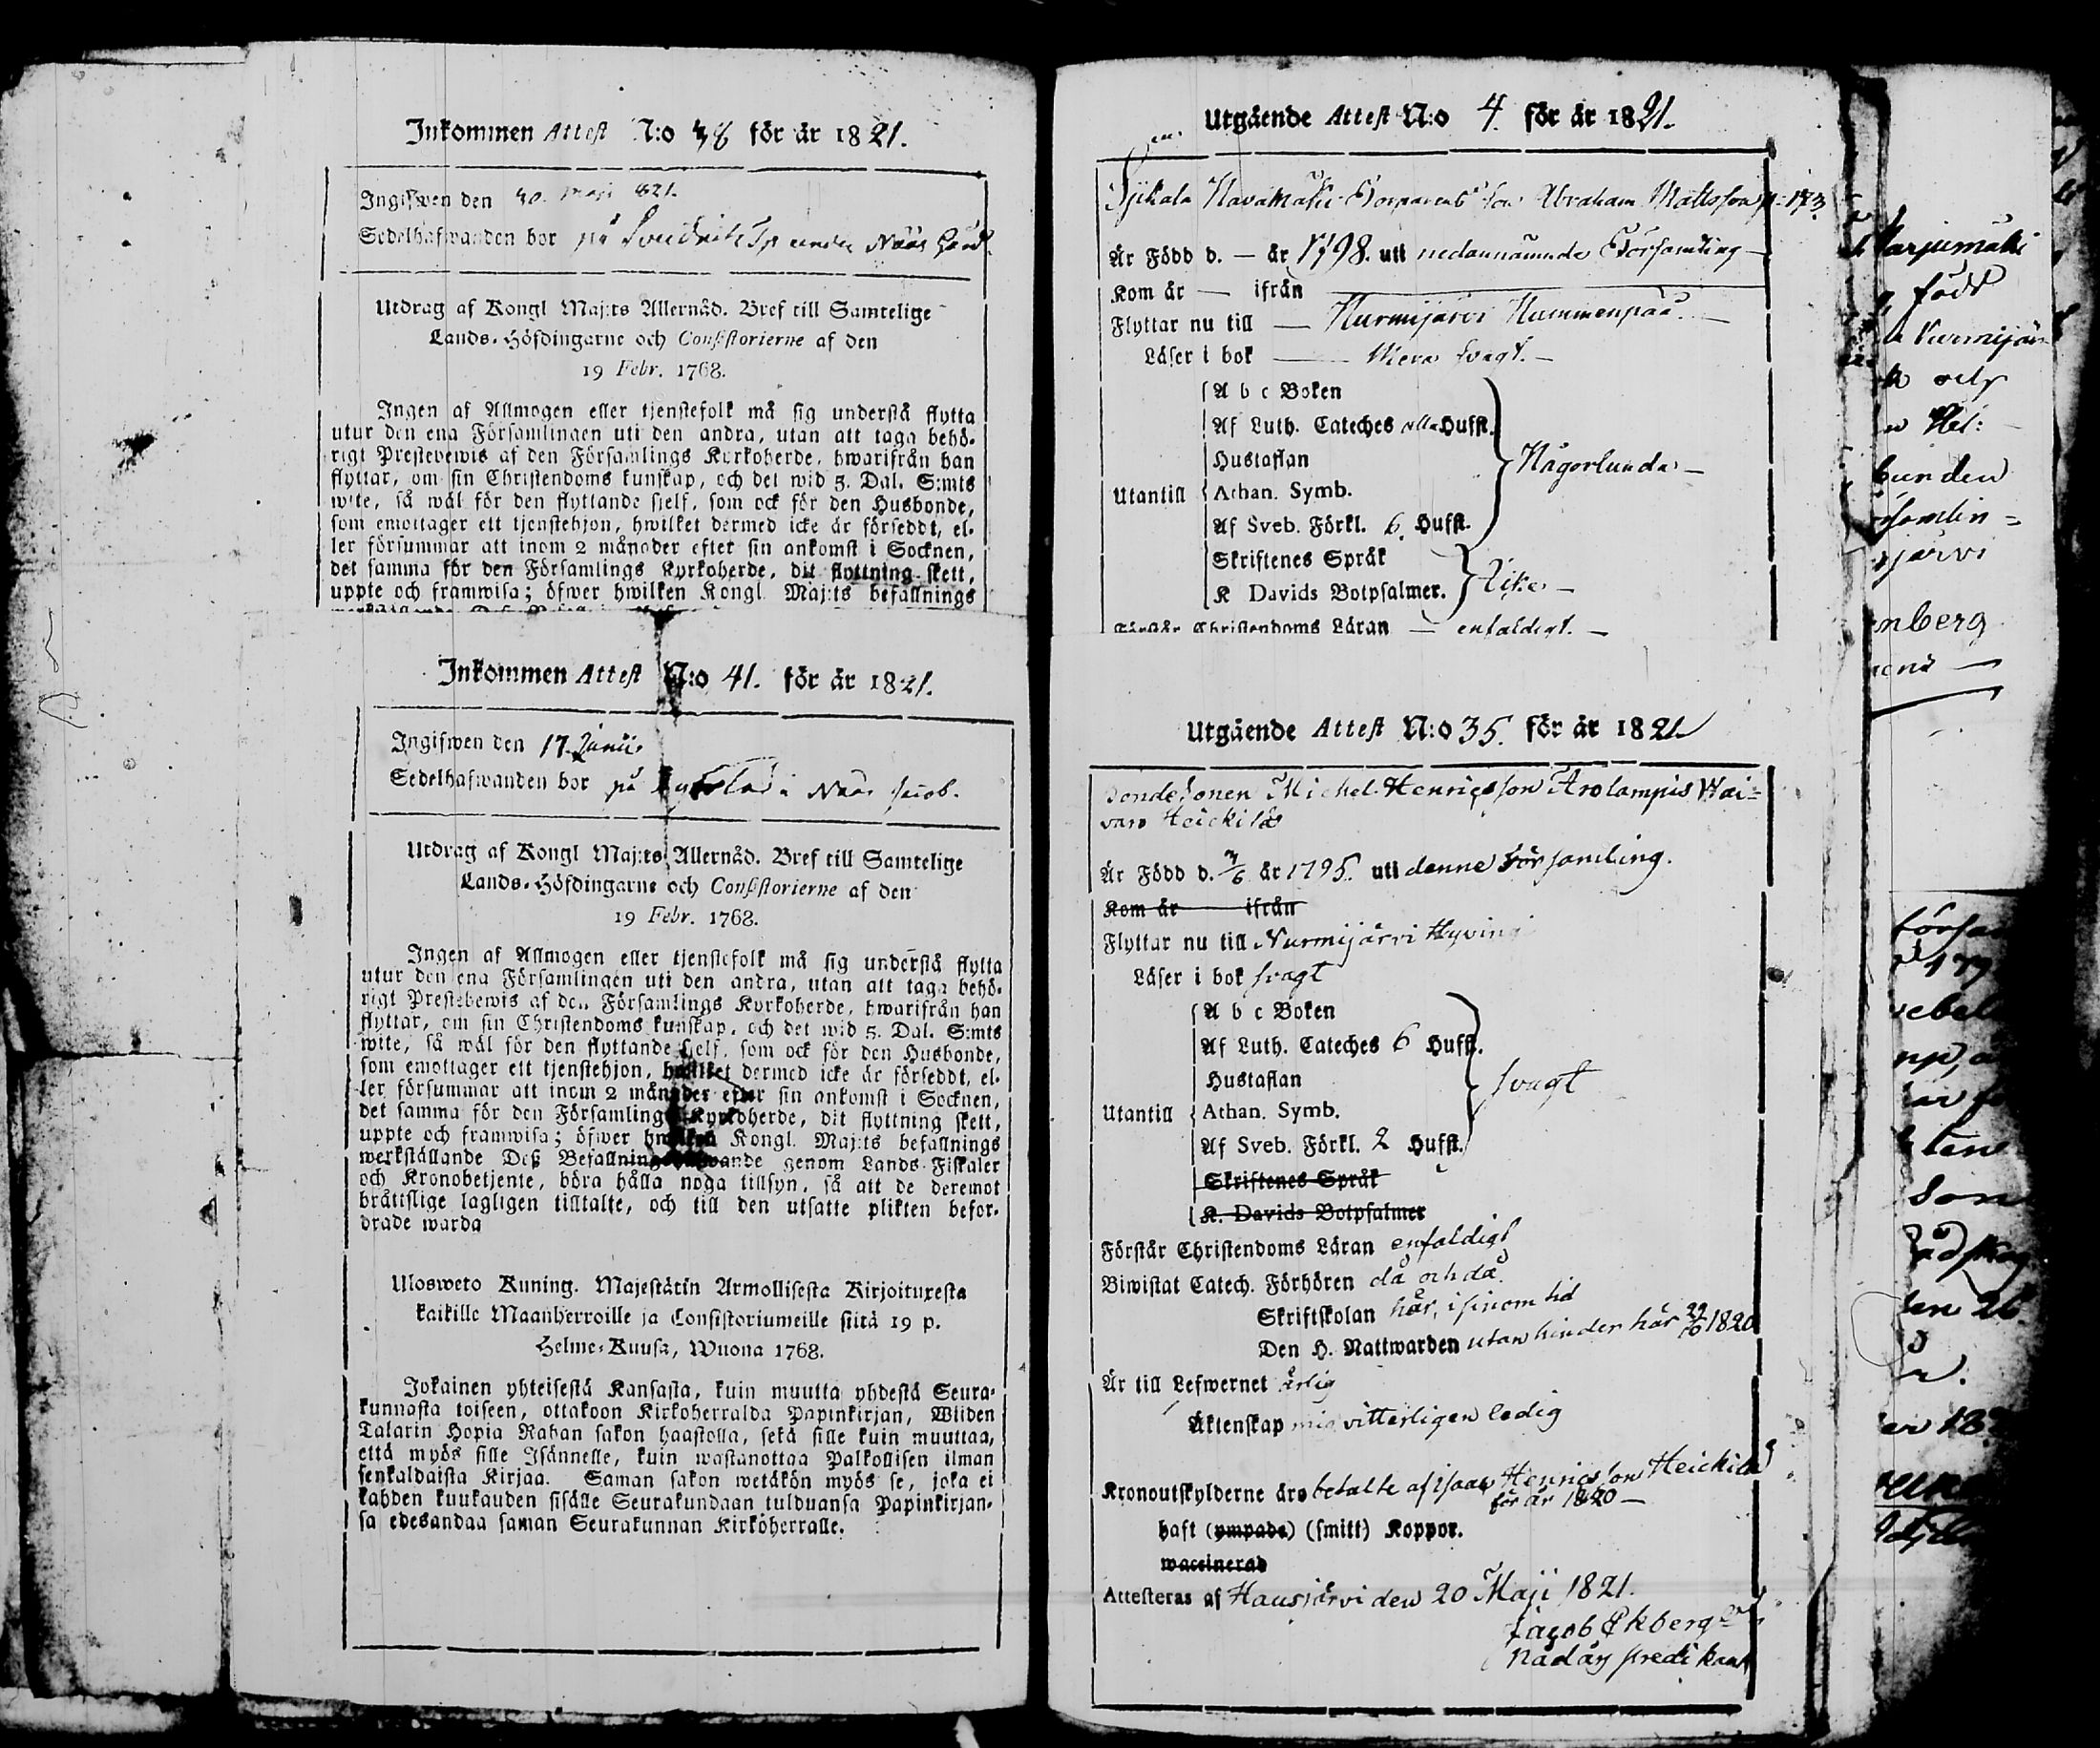 Inkommen Attest N:o 38 för år 1821.
Ingifwen den 30. Maji 821.
Sedelhafwanden bor på under Näås
Utdrag af Kongl Maj:ts Allernåd. Bref till Samtelige
Lands-Höfdingarne och Consistorierne af den
19 Febr. 1768.
Ingen af Allmogen eller tjenstefolk må sig understå flytta
utur den ena Församlingen uti den andra, utan att taga behö-
rigt Prestebewis af den Församlings Kyrkoherde, hwarifrån han
flyttar, om sin Christendoms kunskap, och det wid 5. Dal. S:mts
wite, så wäl för den flyttande sjelf, som ock för den Husbonde,
som emottager ett tjenstehjon, hwilket dermed icke är försedt, el-
ler försummar att inom 2 månader efter sin ankomst i Socknen,
det samma för den Församlings Kyrkoherde, dit flyttning skett,
uppte och framwisa; öfwer hwilken Kongl. Maj:ts befallnings
Inkommen Attest N:o 41. för år 1821.
Ingifwen den 17. Junii.
Sedelhafwanden bor på Näås
Utdrag af Kongl Maj:ts Allernåd. Bref till Samtelige
Lands-Höfdingarne och Consistorierne af den
19 Febr. 1768.
Ingen af Allmogen eller tjenstefolk må sig understå flytta
utur den ena Församlingen uti den andra, utan att taga behö-
rigt Prestebewis af den Församlings Kyrkoherde, hwarifrån han
flyttar, om sin Christendoms kunskap, och det wid 5. Dal. S:mts
wite, så wäl för den flyttande sjelf, som ock för den Husbonde,
som emottager ett tjenstehjon, hwilket dermed icke är försedt, el-
ler försummar att inom 2 månader efter sin ankomst i Socknen,
det samma för den Församlings Kyrkoherde, dit flyttning skett,
uppte och framwisa; öfwer hwilken Kongl. Maj:ts befallnings
werkställande Deß Befallningshafwande genom Lands-Fiskaler
och Kronobetjente, böra hålla noga tillsyn, så att de deremot
bråttslige lagligen tilltalte, och till den utsatte plikten befor-
drade warda
Ulosweto Kuning. Majestätin Armollisesta Kirjoituxesta
kaikille Maanherroille ja Consistoriumeille siitä 19 p.
Helme-Kuusa, Wuona 1768.
Jokainen yhteisestä Kansasta, kuin muutta yhdestä Seura-
kunnasta toiseen, ottakoon Kirkoherralda Papinkirjan, Wiiden
Talarin Hopia Rahan sakon haastolla, sekä sille kuin muuttaa,
että myös sille Isännelle, kuin wastanottaa Palkollisen ilman
senkaldaista Kirjaa. Saman sakon wetäkön myös se, joka ei
kahden kuukauden sisälle Seurakundaan tulduansa Papinkirjan-
sa edesandaa saman Seurakunnan Kirkoherralle.
Utgående Attest N:o 4. för år 1821.
Torparens son Abraham Mattsson
Är Född d. — år 1798. uti nedannämnde Församling —
Kom år — ifrån
Flyttar nu till — Nurmijärvi Nummenpää. —
Läser i bok — Mera svagt. —
A b c Boken
Af Luth. Cateches alla Hufst.
Hustaflan
Någorlunda —
Utantill
Athan. Symb.
Af Sveb. Förkl. 6. Hufst.
Skriftenes Språk
K Davids Botpsalmer.
Lika —
Förstår Christendoms Läran — enfaldigt. —
Utgående Attest N:o 35. för år 1821.
Bondesonen Michel Henricsson Arolampis Wai-
vars Heickilä
Är Född d. 7/6 år 1795. uti denne Församling.
Kom år ifrån
Flyttar nu till Nurmijärvi Hyving
Läser i bok svagt
A b c Boken
Af Luth. Cateches 6 Hufst.
Hustaflan
svagt
Utantill
Athan. Symb.
Af Sveb. Förkl. 2 Hufst.
Skriftenes Språk
K. Davids Botpsalmer
Förstår Christendoms Läran enfaldigt
Biwistat Catech. Förhören då och då.
Skriftskolan här, i sinom tid
Den H. Nattwarden utan hinder här 29/10 1820
Är till Lefwernet ärlig
Äktenskap mig vitterligen ledig
Kronoutskylderne äro betalte af Isaac Henricsson Heickilä
för år 1820 —
haft (ympade) (smitt) Koppor.
waccinerad
Attesteras af Hausjärvi den 20 Maji 1821.
Jacob Ekberg
Nådårs predikant
Harjumäki
född
Nurmijär-
och
nberg